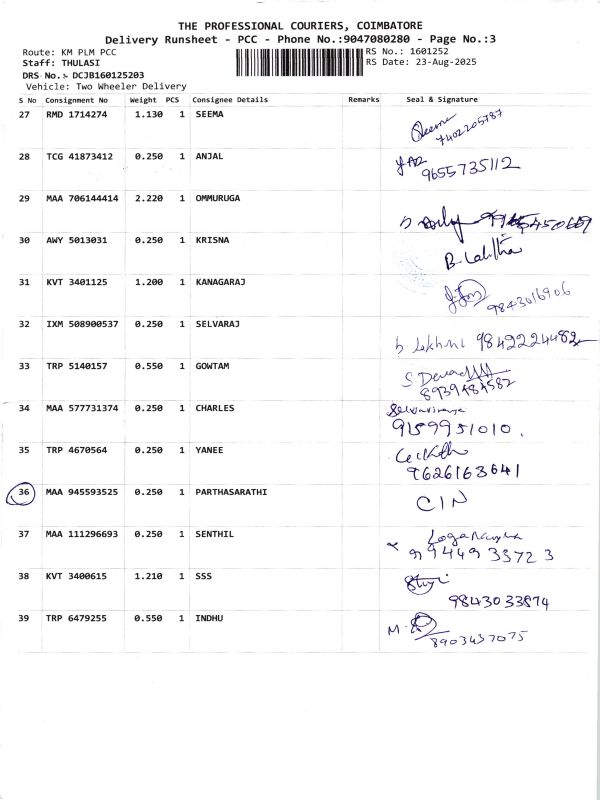 THE PROFESSIONAL COURIERS, COIMBATORE
Delivery Runsheet - PCC - Phone No.:9047080280 - Page No.:3
Route: KM PLM PCC RS No.: 1601252
Staff: THULASI RS Date: 23-Aug-2025
DRS No.:- DCJB160125203
Vehicle: Two Wheeler Delivery
S No Consignment No Weight PCS Consignee Details Remarks Seal & Signature
27 RMD 1714274 1.130 1 SEEMA
Seema
7402205787
28 TCG 41873412 0.250 1 ANJAL
9655735112
29 MAA 706144414 2.220 1 OMMURUGA
30 AWY 5013031 0.250 1 KRISNA
B. Lalitha
31 KVT 3401125 1.200 1 KANAGARAJ
9843016906
32 IXM 508900537 0.250 1 SELVARAJ
9842224482
33 TRP 5140157 0.550 1 GOWTAM
8939484582
34 MAA 577731374 0.250 1 CHARLES
9159951010.
35 TRP 4670564 0.250 1 YANEE
9626163641
36 MAA 945593525 0.250 1 PARTHASARATHI
CIN
37 MAA 111296693 0.250 1 SENTHIL
38 KVT 3400615 1.210 1 SSS
9843033874
39 TRP 6479255 0.550 1 INDHU
M.
8903437075